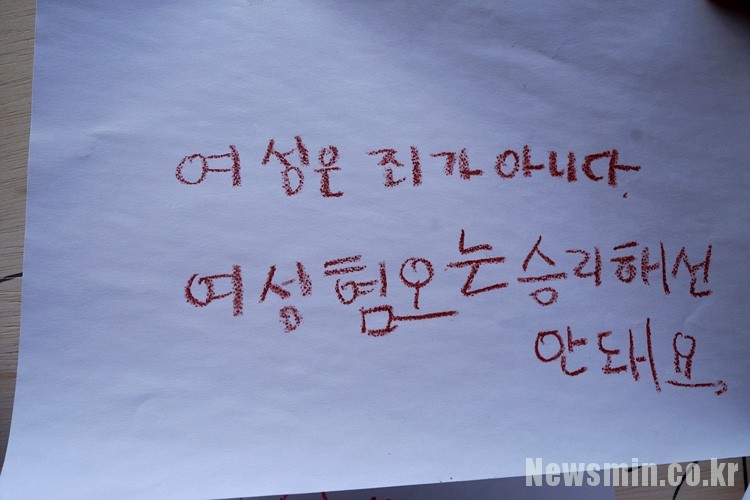 여성은 죄가 아니다.
여성혐오는 승리해선
안돼요,
Newsmin.co.kr